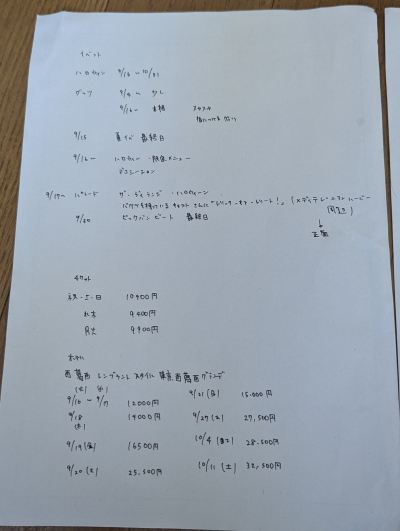 イベント
ハロウィン 9/16 〜 10/31
グッズ 9/9 〜 少し
9/16〜 本格
9/15 夏イベ 最終日
9/16〜 ハロウィン・限定メニュー
デコレーション
9/17〜 パレード ザ・ヴィランズ・ハロウィーン
キャストさんに "トリック・オア・トリート!" (メディテレーニアンハーバー
↓
正面
9/30 ビッグバンド ビート 最終日
チケット
祝・土・日 10900円
9400円
9900円
ホテル
西葛西 レンブラントスタイル東京西葛西グランデ
(火) (水)
9/16 〜 9/17 12000円 9/21 (日) 15.000円
9/18 14000円 9/27 (土) 27,500円
(木)
9/19 (金) 16500円 10/4 (土) 28.500円
9/20 (土) 25.500円 10/11 (土) 32,500円